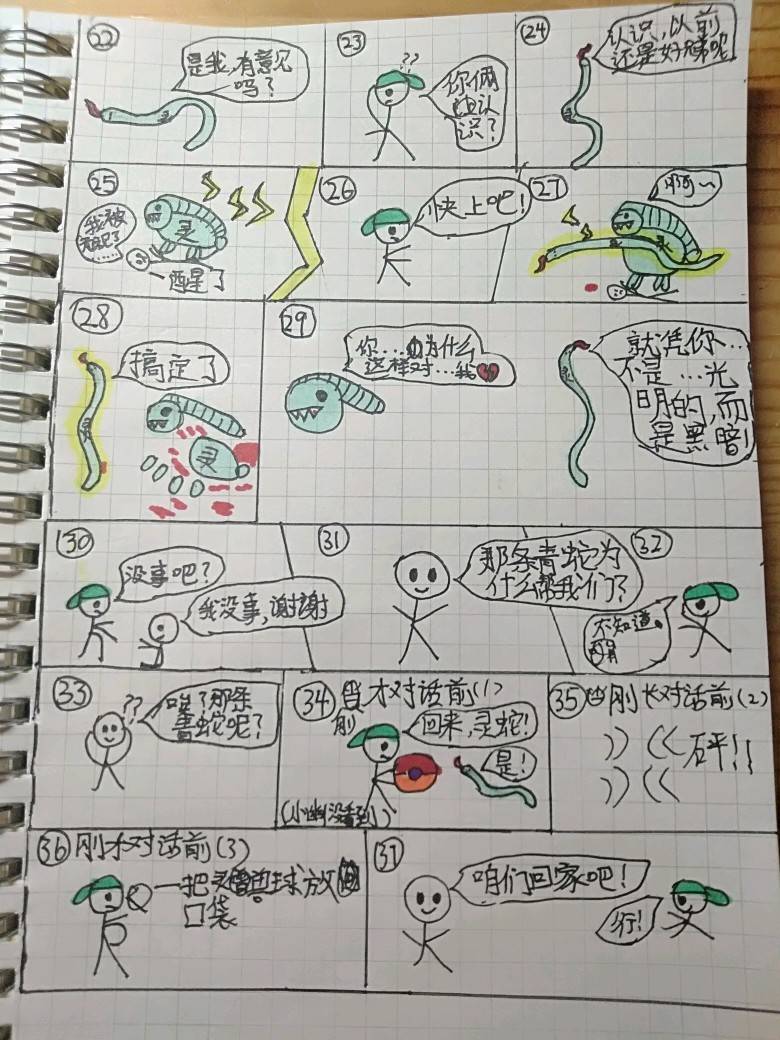 22
是我,有意见
吗?
23
??
你俩
认
识?
24
认识,以前
还是好兄弟呢
25
我被
灵
醒了
26
快上吧!
27
啊~
灵
28
搞定了
灵
灵
29
你...为什么
这样对...我
就凭你...
不是...光
明的,而
是黑暗!
灵
30
没事吧?
我没事,谢谢
31
那条青蛇为
什么帮我们?
32
不知道。
33
??
唉?那条
青蛇呢?
34
刚才对话前(1)
回来,灵蛇!
是!
(小幽没看到)
35
刚才对话前(2)
砰!!
36
刚才对话前(3)
一把灵兽球放
口袋
37
咱们回家吧!
行!